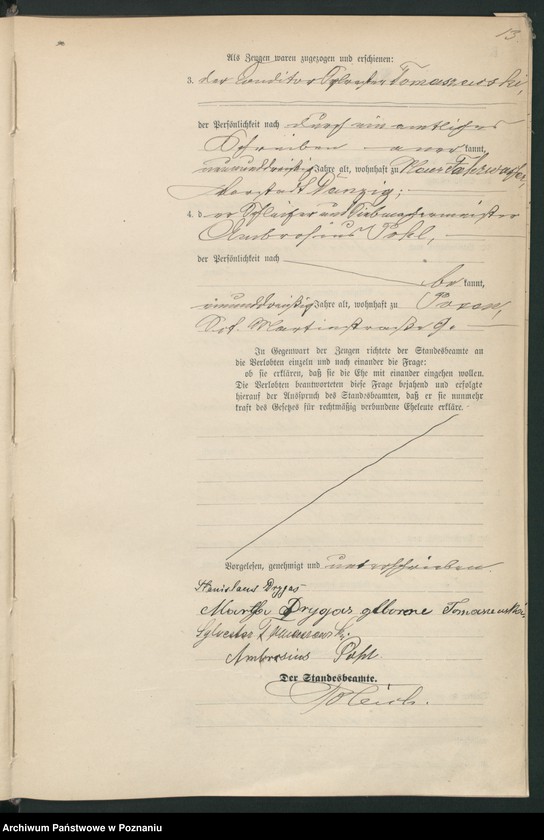 13
Als Zeugen waren zugezogen und erschienen:
3. der Conditor Sylvester Tomaszewski,
der Persönlichkeit nach durch ein amtliches
Schreiben aner kannt,
neununddreißig Jahre alt, wohnhaft zu Neufahrwasser,
Vorstadt Danzig;
4. der Schleifer und Siebmachermeister
Ambrosius Pohl,
der Persönlichkeit nach
be kannt,
einunddreißig Jahre alt, wohnhaft zu Posen,
Skt. Martinstraße 9.
In Gegenwart der Zeugen richtete der Standesbeamte an
die Verlobten einzeln und nach einander die Frage:
ob sie erklären, daß sie die Ehe mit einander eingehen wollen.
Die Verlobten beantworteten diese Frage bejahend und erfolgte
hierauf der Ausspruch des Standesbeamten, daß er sie nunmehr
kraft des Gesetzes für rechtmäßig verbundene Eheleute erkläre.
Vorgelesen, genehmigt und unterschrieben.
Stanislaus Drygas
Martha Drygas geborene Tomaszewska.
Sylvester Tomaszewski.
Ambrosius Pohl
Der Standesbeamte.
Archiwum Państwowe w Poznaniu